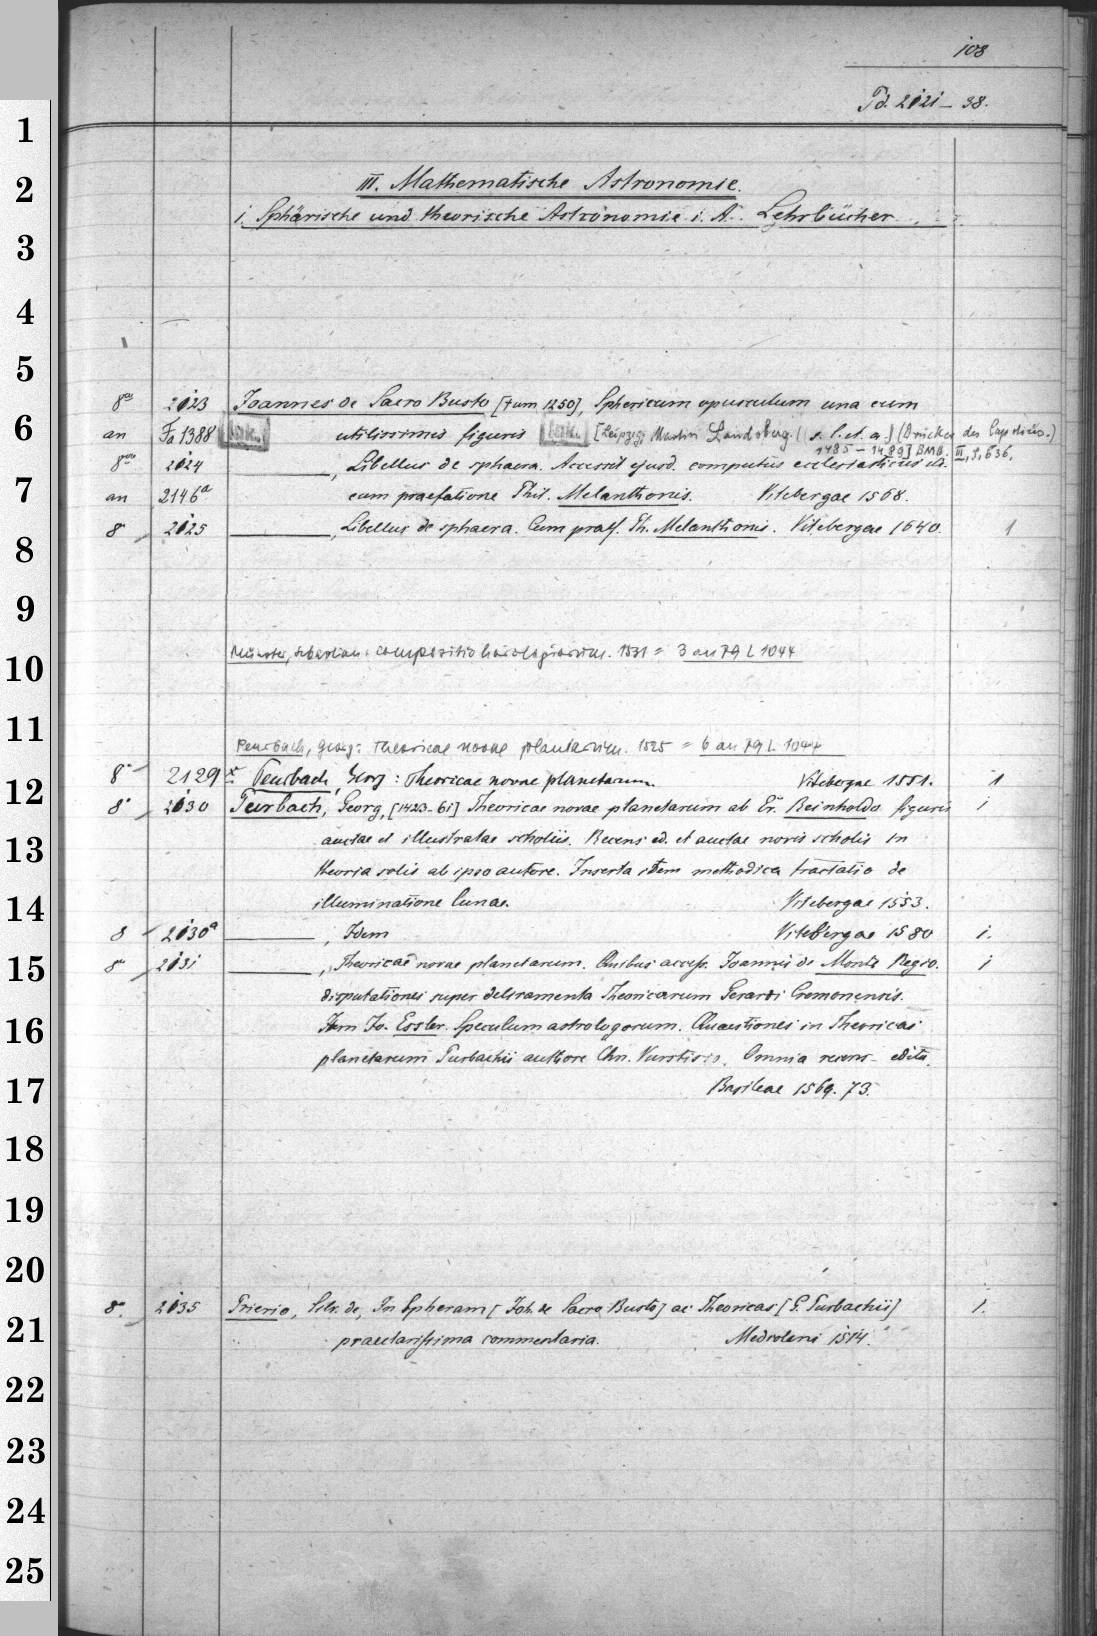 108
Pd. 2021 - 38.
III. Mathematische Astronomie.
1. Sphärische und theorische Astronomie i. A. Lehrbücher.
8° 2023 Joannes de Sacro Busto [† um 1250], Sphericum opusculum una cum
an Fa 1388 Ink. utilissimis figuris Ink. [Leipzig: Martin Landsberg] s. l. et a.] (Drucker des Capotius.)
1485-1489] BMC. III, S. 636.
8° 2024 ———, Libellus de sphaera. Accessit ejusd. computus ecclesiasticus
an 2146a cum praefatione Phil. Melanthonis. Vitebergae 1568.
8° 2025 ———, Libellus de sphaera. Cum praef. Ph. Melanthonis. Vitebergae 1640. 1
Münster, Sebastian: compositio horologiorum. 1531 = 3 an 79 L 1044
Peurbach, Georg: Theoricae novae planetarum. 1525 = 6 an 79 L 1044
8° 2129 x Peurbach, Georg: Theoricae novae planetarum. Vitebergae 1551. 1
8° 2030 Purbach, Georg, [1423-61] Theoricae novae planetarum ab Er. Reinholdo figuris 1
auctae et illustratae scholiis. Recens ed. et auctae novis scholis in
theoria solis ab ipso autore. Inserta item methodica tractatio de
illuminatione lunae. Vitebergae 1553.
8 2030a ———, Idem Vitebergae 1580 1.
8° 2031 ———, Theoricae novae planetarum. Quibus access. Joannis de Monte Regio. 1
disputationes super deliramenta Theoricarum Gerardi Cremonensis.
Item Jo. Essler. Speculum astrologorum. Quaestiones in Theoricas
planetarum Purbachii authore Chn. Vurstisio. Omnia recens edita.
Basileae 1569. 73.
8°. 2035 Prierio, Silv. de, In Spheram [Joh. de Sacro Busto] ac Theoricas [G. Purbachii] 1.
praeclarissima commentaria. Mediolani 1514.
1
2
3
4
5
6
7
8
9
10
11
12
13
14
15
16
17
18
19
20
21
22
23
24
25